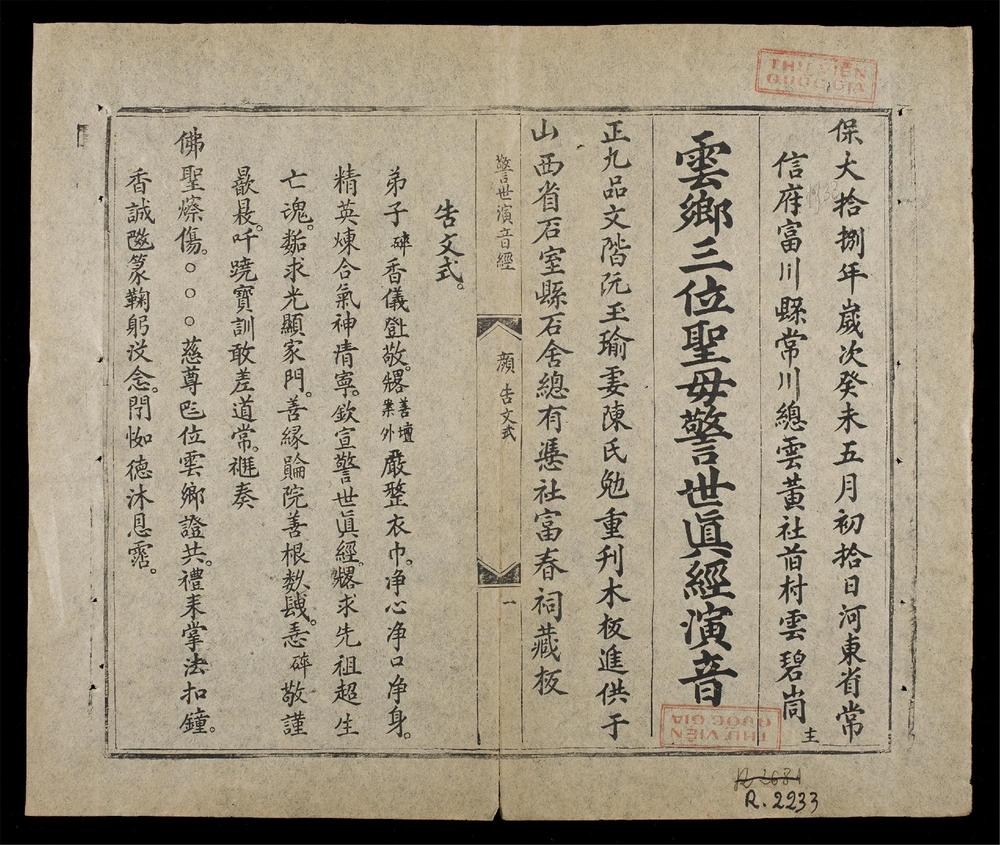 THƯ VIỆN
QUỐC GIA
保大拾捌年歲次癸未五月初拾日河東省常
信府富川縣常川總雲黃社首村雲碧尚
主
雲鄉三位聖母警世眞經演音
正九品文階阮玉瑜妻陳氏勉重刊木板進供于
山西省石室縣石舍總有憑社富春祠藏板
警世演音經
顏 告文式
一
告文式。
弟子𥐨香儀𨖲敬。善壇案外嚴整衣巾。净心净口净身。
精英煉合氣神清寧。欽宣警世眞經。求先祖超生
亡魂。求光顯家門。善緣院善根。𥐨敬謹
吀寶訓敢差道常。奏
佛聖傷。○○○慈尊𠀧位雲鄉證共。禮耒掌法扣鐘。
香誠篆鞠躬念。徳沐恩
THƯ VIỆN
QUỐC GIA
R.2681
R.2233